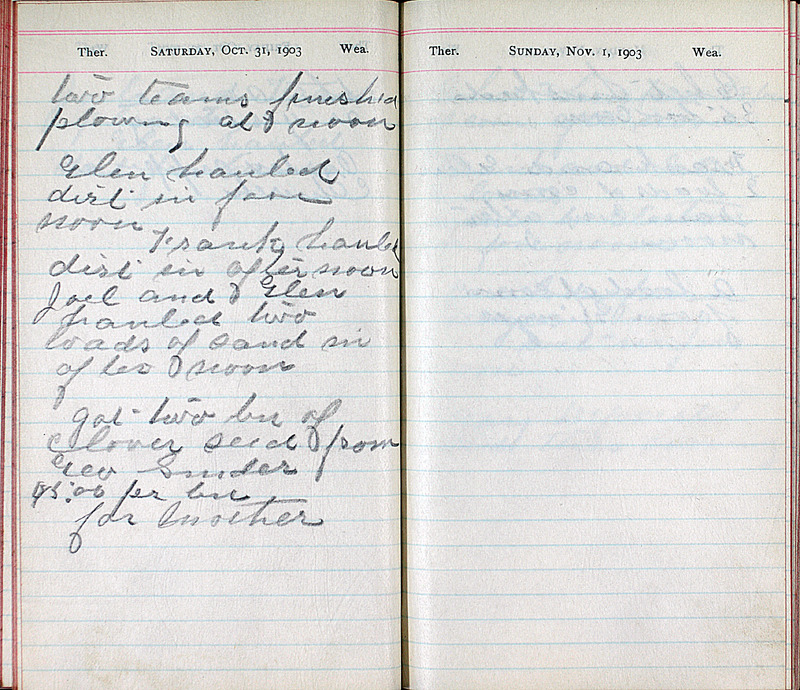 Ther. SATURDAY, OCT. 31, 1903 Wea.
two teams finished
plowing at noon
Glen hauled
dirt in fore
noon
Frank hauled
dirt in after noon
Joel and Glen
hauled two
loads of sand in
after noon
got two bu of
clover seed from
Geo Snider
per bu
for Mother
Ther. SUNDAY, NOV. 1, 1903 Wea.